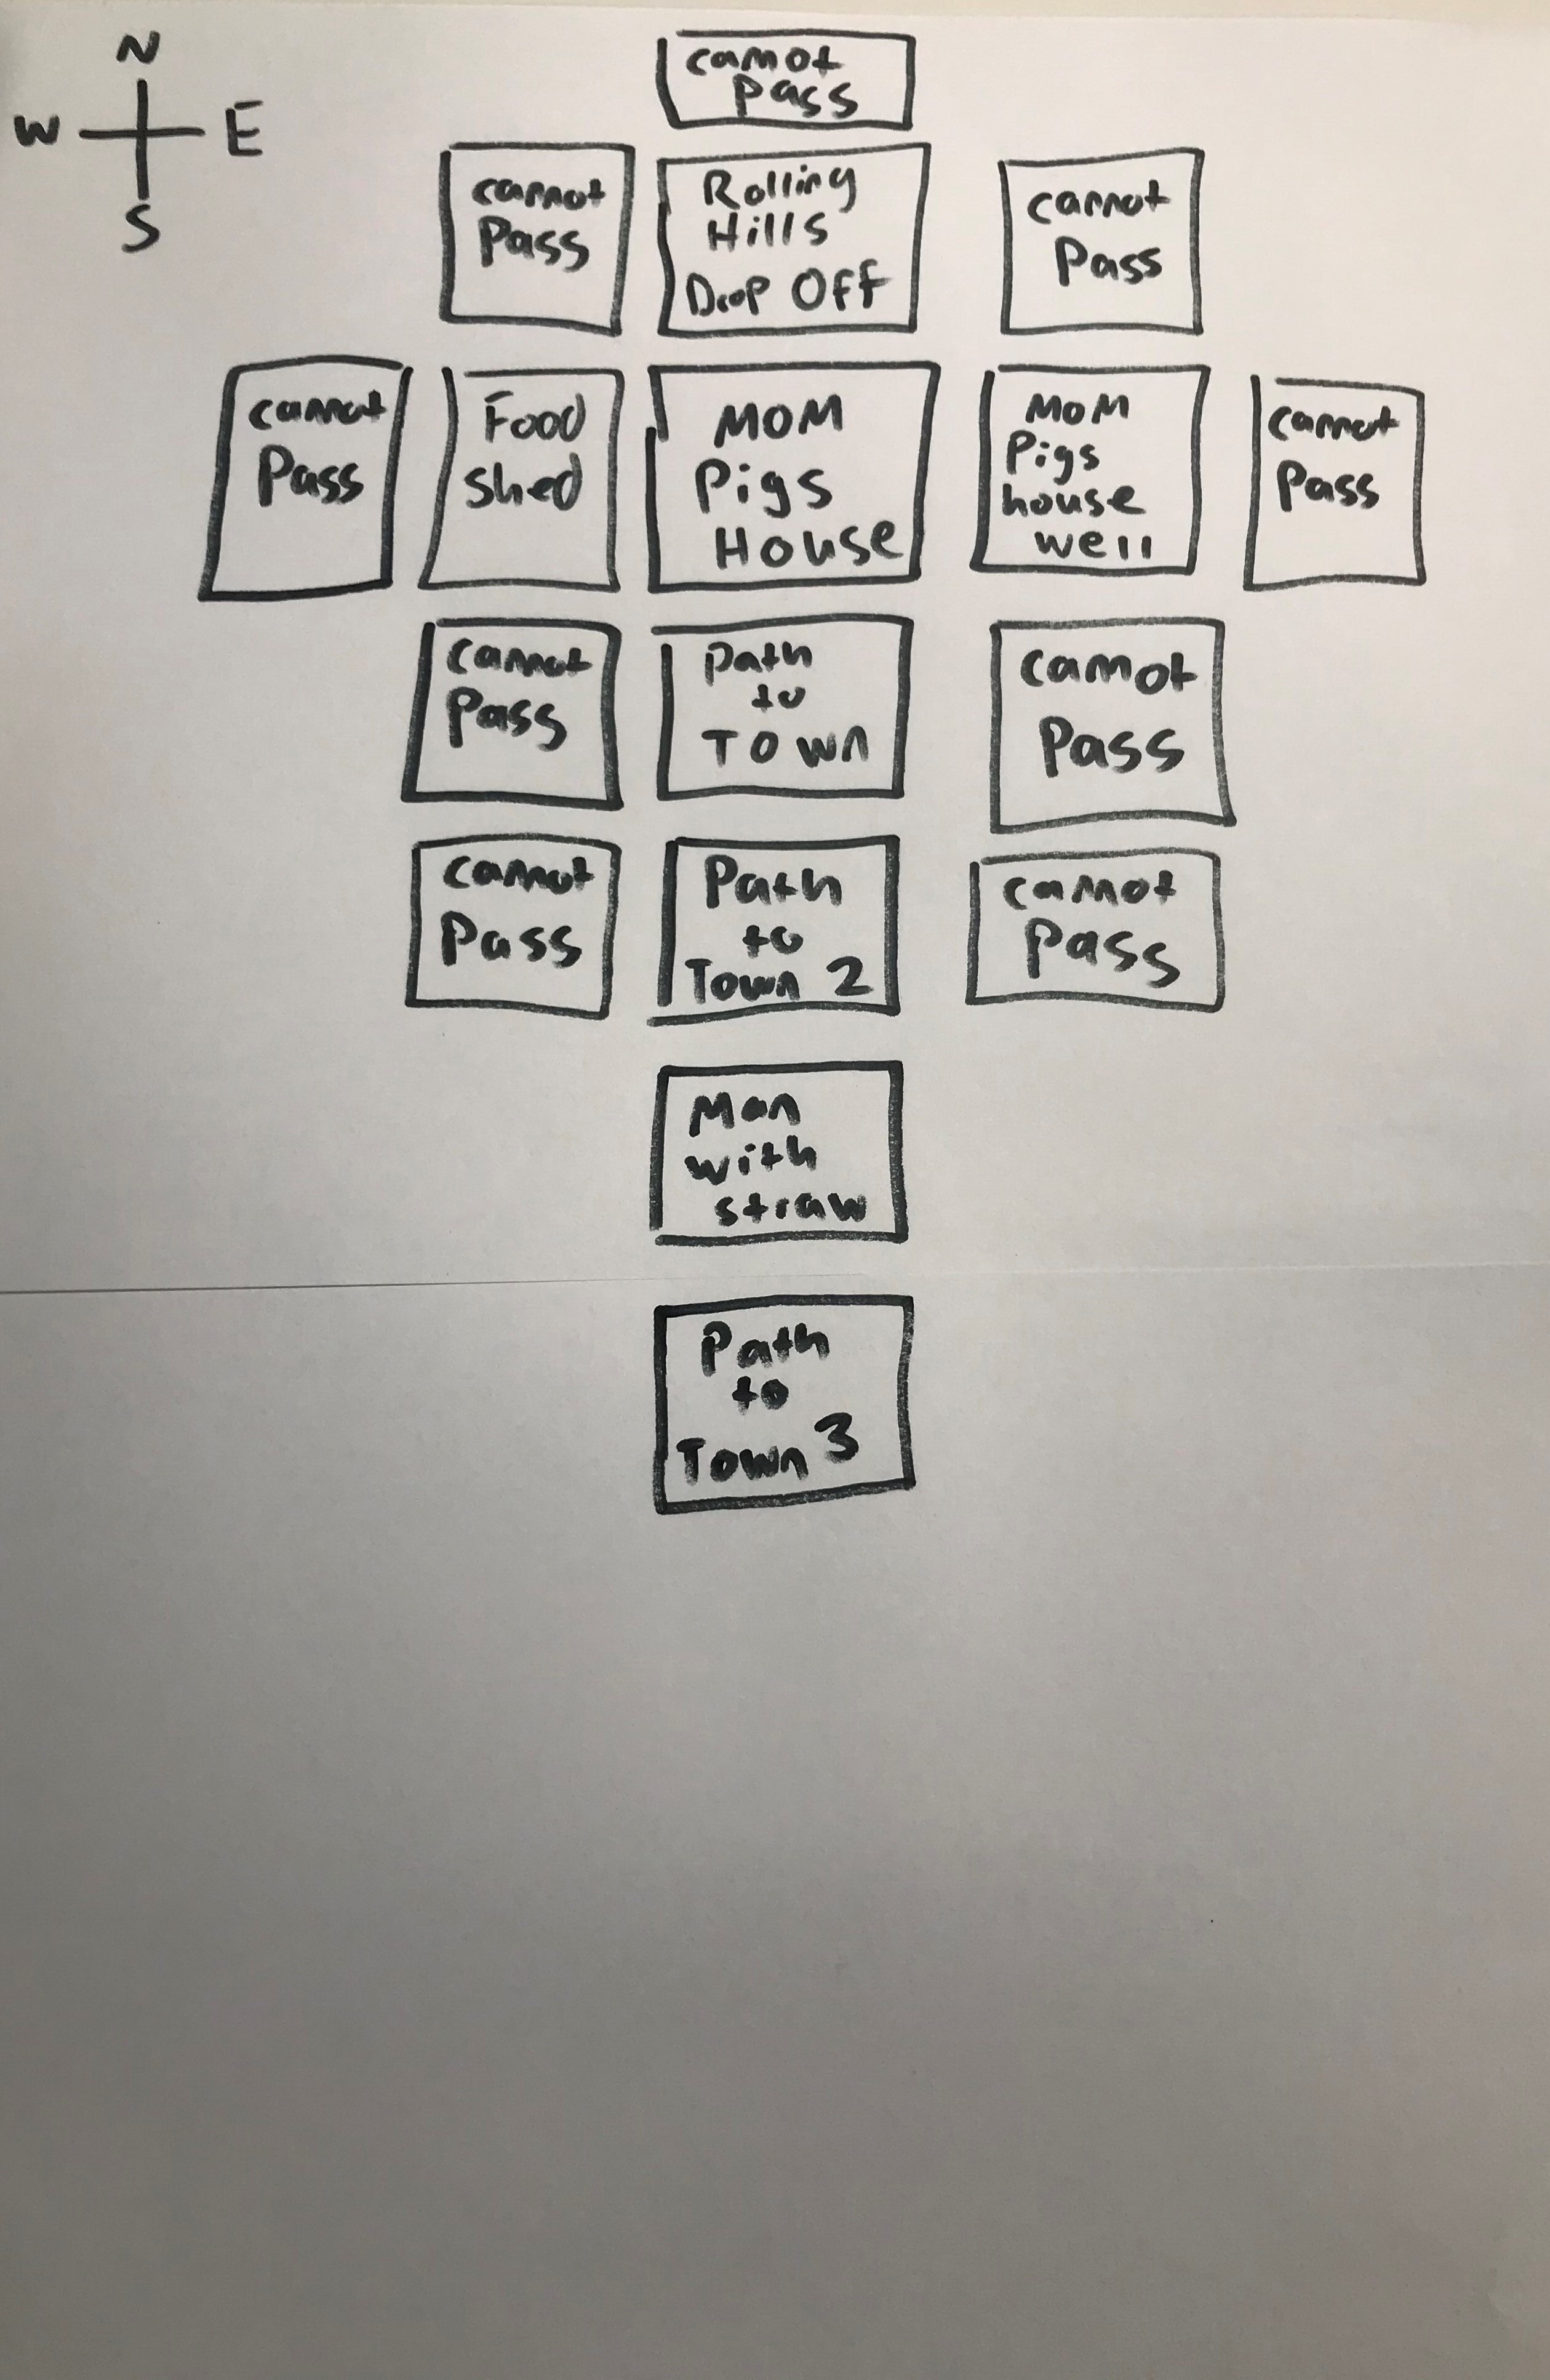 N
W E
S
cannot
Pass
cannot
Pass
Rolling
Hills
Drop Off
cannot
Pass
cannot
Pass
Food
shed
MOM
Pigs
House
MOM
Pigs
house
well
cannot
Pass
cannot
Pass
path
to
TOWN
cannot
Pass
cannot
Pass
Path
to
Town 2
cannot
Pass
Man
with
straw
Path
to
Town 3